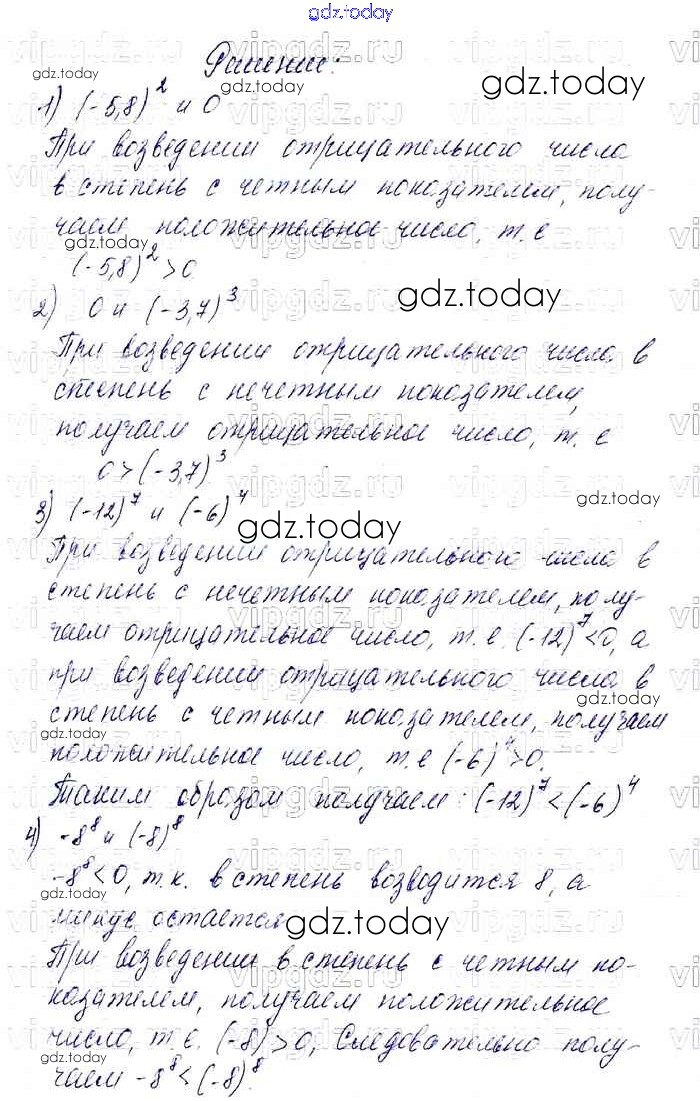 gdz.today
Решение:
1) (-5,8)² и 0
При возведении отрицательного числа
в степень с четным показателем, полу-
чаем положительное число, т.е
(-5,8)² > 0
2) 0 и (-3,7)³
При возведении отрицательного числа в
степень с нечетным показателем,
получаем отрицательное число, т.е
0 > (-3,7)³
3) (-12)⁷ и (-6)⁴
При возведении отрицательного числа в
степень с нечетным показателем, полу-
чаем отрицательное число, т.е. (-12)⁷<0, а
при возведении отрицательного числа в
степень с четным показателем, получаем
положительное число, т.е (-6)⁴>0.
Таким образом получаем: (-12)⁷ < (-6)⁴
4) -8⁸ и (-8)⁸
-8⁸<0, т.к. в степень возводится 8, а
минус остается
При возведении в степень с четным по-
казателем, получаем положительное
число, т.е. (-8)>0, Следовательно полу-
чаем -8⁸<(-8)⁸.